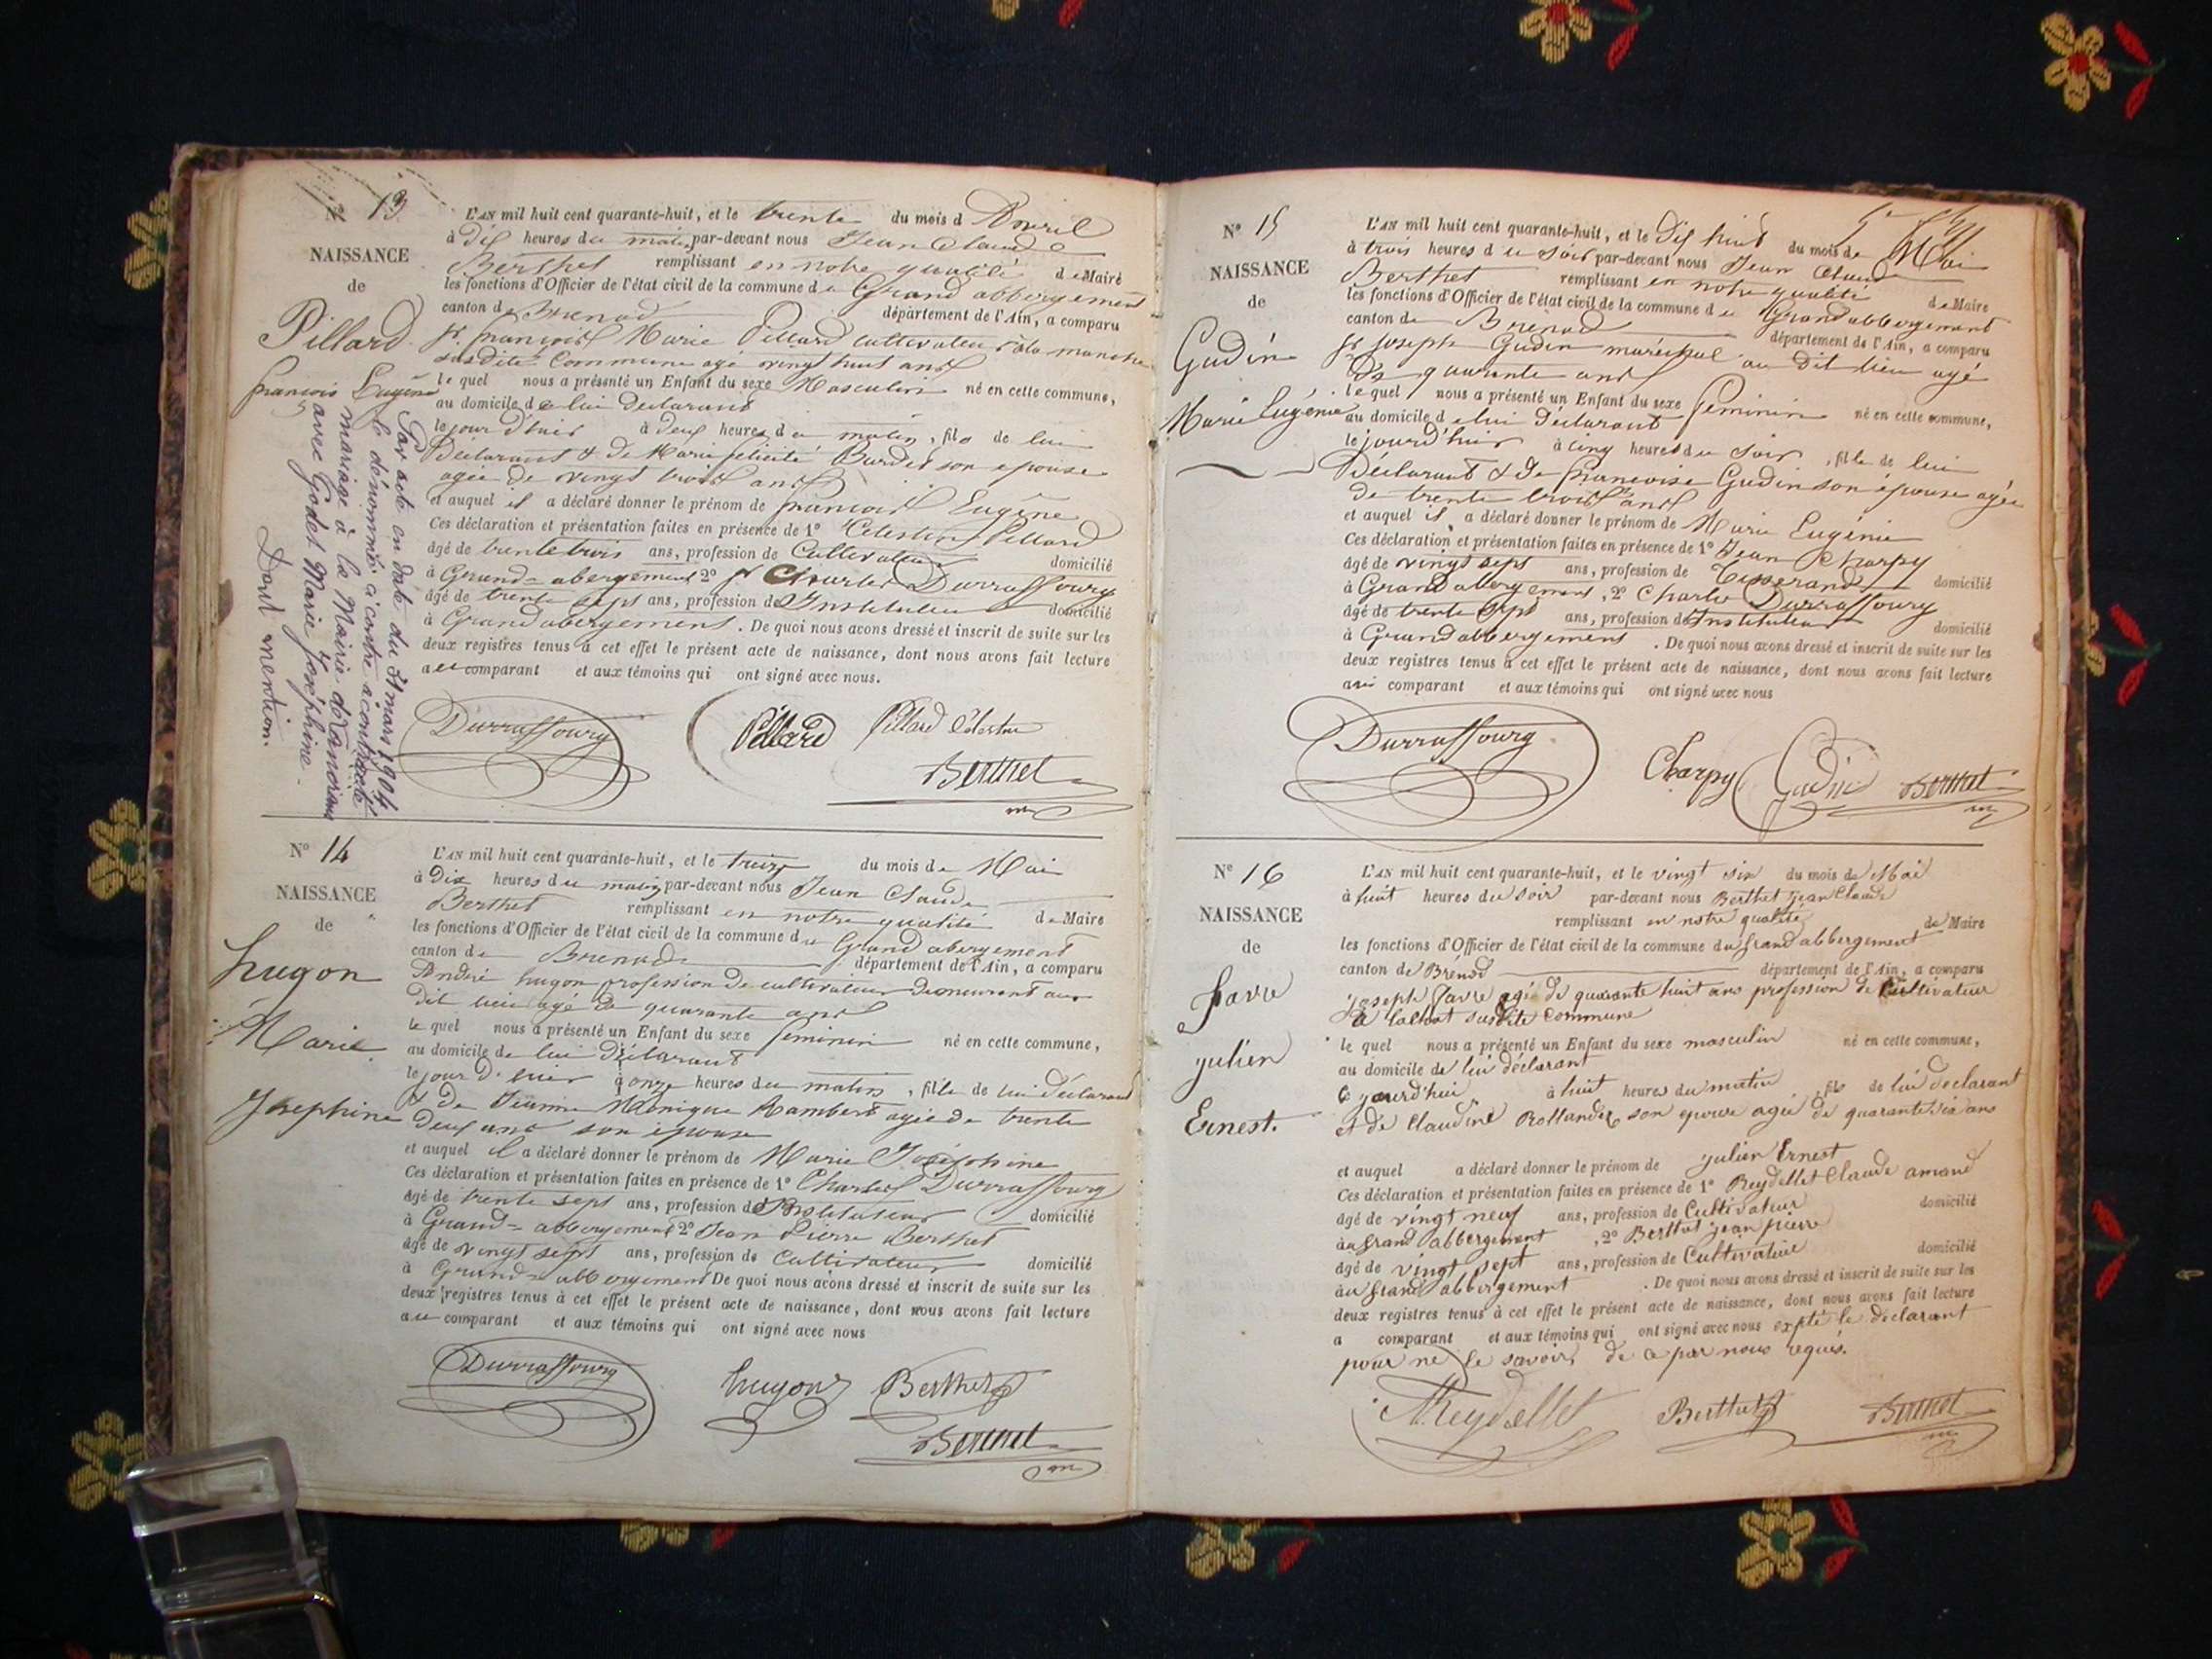 Nº 13
NAISSANCE
de
Pillard
françois Eugène
Par acte en date du 31 mars 1904
le dénommé ci contre a contracté
mariage à la Mairie d'
avec Godet Marie Joséphine.
Dont mention.
L'AN mil huit cent quarante-huit, et le trente du mois d Avril
à dix heures du matin par-devant nous Jean Claude
Berthet remplissant en notre qualité de Maire
les fonctions d'Officier de l'état civil de la commune du Grand abbergement
canton de Brenod département de l'Ain, a comparu
Sr. françois Marie Pillard cultivateur à la manche
susdite Commune agé vingt huit ans
le quel nous a présenté un Enfant du sexe Masculin né en cette commune,
au domicile de lui Déclarant
le jour d'hui à deux heures du matin, fils de lui
Déclarant & de Marie félicité Burdet son épouse
agée de vingt trois ans
et auquel il a déclaré donner le prénom de francois Eugène
Ces déclaration et présentation faites en présence de 1º Célestin Pillard
âgé de trente trois ans, profession de Cultivateur domicilié
à Grand-abergement 2º Sr Charles Durraffourg
âgé de trente sept ans, profession de Instituteur domicilié
à Grand abergement. De quoi nous avons dressé et inscrit de suite sur les
deux registres tenus à cet effet le présent acte de naissance, dont nous avons fait lecture
au comparant et aux témoins qui ont signé avec nous.
Durraffourg Pillard Pillard Célestin
Berthet
Nº 14
NAISSANCE
de
hugon
Marie
Josephine
L'AN mil huit cent quarante-huit, et le treize du mois de Mai
à Dix heures du matin par-devant nous Jean Claude
Berthet remplissant en notre qualité de Maire
les fonctions d'Officier de l'état civil de la commune du Grand abergement
canton de Brenod département de l'Ain, a comparu
André hugon profession de cultivateur demeurant au
dit lieu agé de quarante ans
le quel nous a présenté un Enfant du sexe feminin né en cette commune,
au domicile de lui Déclarant
le jour d'hui à onze heures du matin, fille de lui déclarant
& de Jeanne Monique Rambert agée de trente
deux ans son épouse
et auquel il a déclaré donner le prénom de Marie Joséphine
Ces déclaration et présentation faites en présence de 1º Charles Durraffourg
âgé de trente sept ans, profession de Instituteur domicilié
à Grand-abbergement 2º Jean Pierre Berthet
âgé de vingt sept ans, profession de cultivateur domicilié
à Grand-abbergement De quoi nous avons dressé et inscrit de suite sur les
deux registres tenus à cet effet le présent acte de naissance, dont nous avons fait lecture
au comparant et aux témoins qui ont signé avec nous
Durraffourg hugon Berthet
Berthet
Nº 15
NAISSANCE
de
Gudin
Marie Eugénie
L'AN mil huit cent quarante-huit, et le dix huit du mois de Mai
à trois heures du soir par-devant nous Jean Claude
Berthet remplissant en notre qualité de Maire
les fonctions d'Officier de l'état civil de la commune du Grand abbergement
canton de Brenod département de l'Ain, a comparu
Sr Joseph Gudin maréchal au dit lieu agé
de quarante ans
le quel nous a présenté un Enfant du sexe feminin né en cette commune,
au domicile de lui Déclarant
le jourd'hui à cinq heures du soir, fille de lui
Déclarant & de francoise Gudin son épouse agée
de trente trois ans
et auquel il a déclaré donner le prénom de Marie Eugénie
Ces déclaration et présentation faites en présence de 1º Jean Charpy
âgé de vingt sept ans, profession de Tisserand domicilié
à Grand abergement, 2º Charles Durraffourg
âgé de trente sept ans, profession de Instituteur domicilié
à Grand abbergement. De quoi nous avons dressé et inscrit de suite sur les
deux registres tenus à cet effet le présent acte de naissance, dont nous avons fait lecture
au comparant et aux témoins qui ont signé avec nous
Durraffourg Charpy Gudin Berthet
Nº 16
NAISSANCE
de
favre
julien
Ernest.
L'AN mil huit cent quarante-huit, et le vingt six du mois de Mai
à huit heures du soir par-devant nous Berthet Jean Claude
remplissant en notre qualité de Maire
les fonctions d'Officier de l'état civil de la commune du grand abbergement
canton de Brénod département de l'Ain, a comparu
joseph favre agé de quarante huit ans profession de Cultivateur
à susdite Commune
le quel nous a présenté un Enfant du sexe masculin né en cette commune,
au domicile de lui déclarant
le jourd'hui à huit heures du matin, fils de lui declarant
et de Claudine Rollandez son épouse agée de quarante six ans
et auquel a déclaré donner le prénom de julien Ernest
Ces déclaration et présentation faites en présence de 1º Reydellet Claude amand
âgé de vingt neuf ans, profession de Cultivateur domicilié
au grand abbergement, 2º Berthet jean pierre
âgé de vingt sept ans, profession de Cultivateur domicilié
au grand abbergement. De quoi nous avons dressé et inscrit de suite sur les
deux registres tenus à cet effet le présent acte de naissance, dont nous avons fait lecture
a comparant et aux témoins qui ont signé avec nous expté le déclarant
pour ne le savoir de ce par nous requis.
Reydellet Berthet Berthet